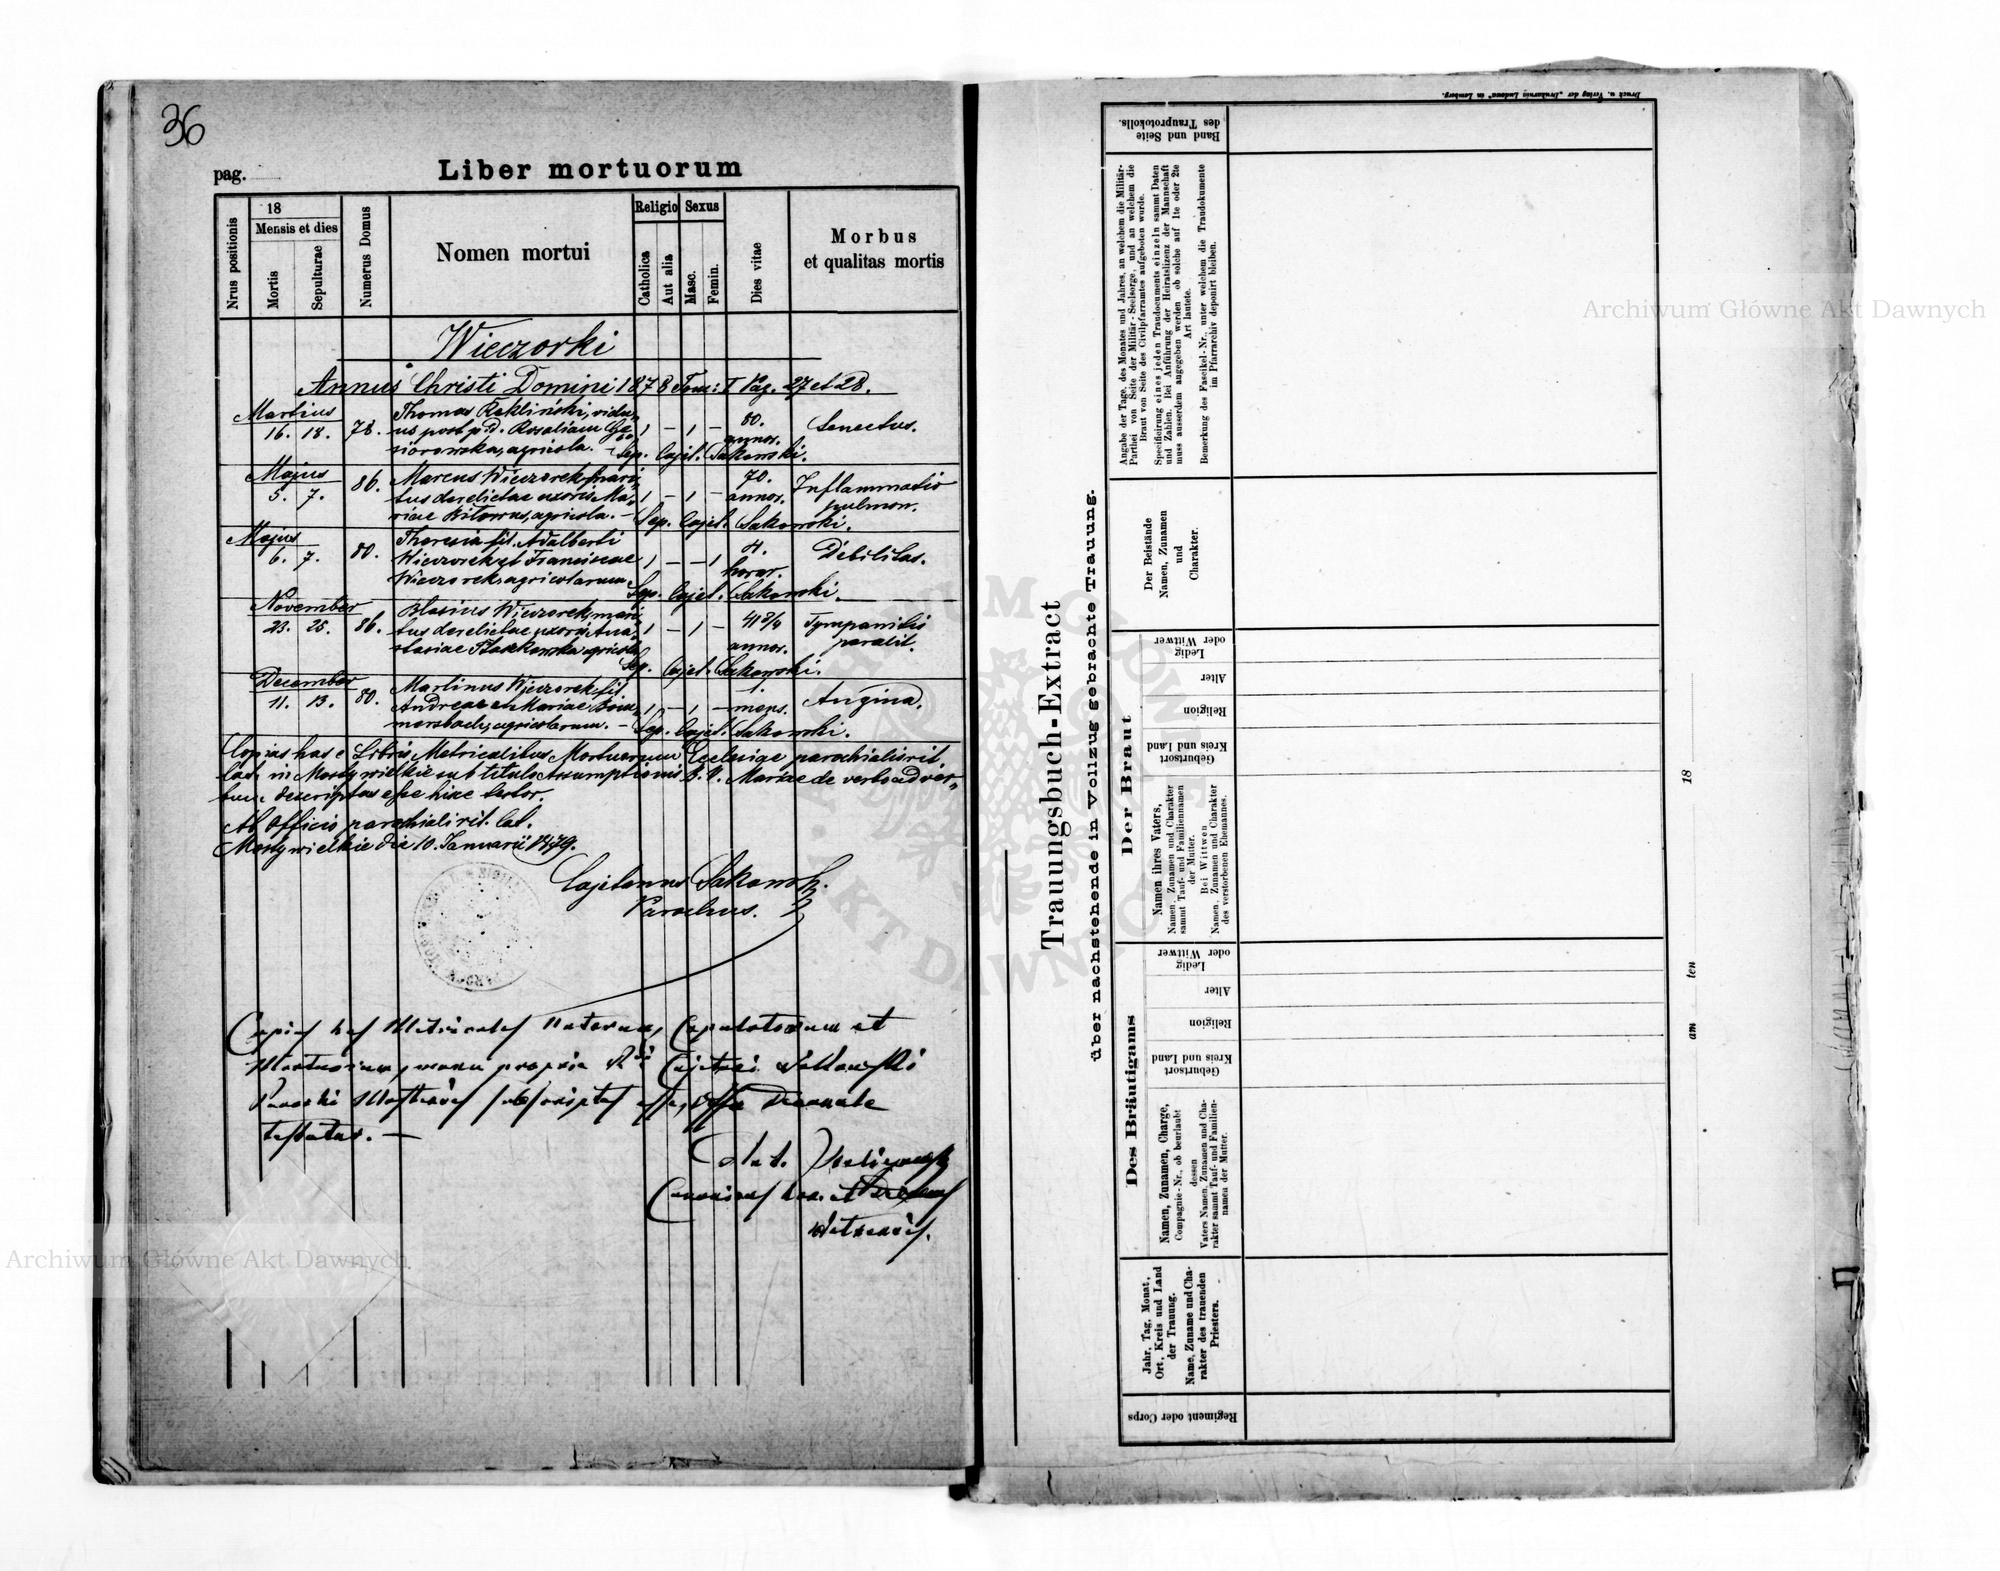 36
pag.
Liber mortuorum
Nrus positionis
18
Mensis et dies
Mortis
Sepulturae
Numerus Domus
Nomen mortui
Religio
Catholica
Aut alia
Sexus
Masc.
Femin.
Dies vitae
Morbus
et qualitas mortis
Wieczorki
Annus Christi Domini 1878 Tom: I Pag. 27 et 28.
Martius
16. 18. 78.
Thomas Rekliński, vidu„
us post p. d. Rosaliam
agricola.
1 – 1 –
80.
annor.
Senectus.
Sep. Cajet. Sakowski.
Majus
5. 7. 86.
Marcus Wieczorek, mari„
tus derelictae uxoris Ma„
riae agricola. –
1 – 1 –
70.
annor.
Inflammatio
pulmon.
Sep. Cajet. Sakowski.
Majus
6. 7. 80.
Theresia fil. Adalberti
Wieczorek et Franciscae
Wieczorek, agricolarum
1 – – 1
4.
horar.
Debilitas.
Sep. Cajet. Sakowski.
November
23. 25. 86.
Blasius Wieczorek, mari„
tus derelictae uxoris Ana„
stasiae agricola
1 – 1 –
41 3/4
annor.
Tympanitis
paralit.
Sep. Cajet. Sakowski.
December
11. 13. 80.
Martinus Wieczorek fil.
Andreae et Mariae
agricolarum. –
1 – 1 –
1.
mens.
Angina.
Sep. Cajet. Sakowski.
Copias has e Libris Metricalibus Mortuorum Ecclesiae parochialis rit.
lat. in Mosty wielkie sub titulo Assumptionis B. V. Mariae de verbo ad ver„
bum descriptas esse hisce testor.
Ab Officio parochiali rit. lat.
Mosty wielkie die 10. Januarii 1879.
Cajetanus Sakowski
Parochus.
Copias has Metricales Natorum, Copulatorum et
Mortuorum, manu propria Rdi Cajetani Sakowski
Parochi subscriptas esse, Offm Decanale
testatur. —
Canonicus hon. et Decanus
Druck u. Verlag der „Drukarnia Ludowa“ in Lemberg.
Trauungsbuch-Extract
über nachstehende in Vollzug gebrachte Trauung.
Band und Seite
des Trauprotokolls.
Angabe der Tage, des Monates und Jahres, an welchem die Militär-
Parthei von Seite der Militär-Seelsorge, und an welchem die
Braut von Seite des Civilpfarramtes aufgeboten wurde.
Specificirung eines jeden Traudocuments einzeln sammt Daten
und Zahlen. Bei Anführung der Heiratslizenz der Mannschaft
muss ausserdem angegeben werden ob solche auf 1te oder 2te
Art lautete.
Bemerkung des Fascikel-Nr., unter welchem die Traudokumente
im Pfarrarchiv deponirt bleiben.
Der Beistände
Namen, Zunamen
und
Charakter.
Der Braut
Ledig
oder Wittwer
Alter
Religion
Geburtsort
Kreis und Land
Namen ihres Vaters,
Namen, Zunamen und Charakter
sammt Tauf- und Familiennamen
der Mutter.
Bei Wittwen
Namen, Zunamen und Charakter
des verstorbenen Ehemannes.
Des Bräutigams
Ledig
oder Wittwer
Alter
Religion
Geburtsort
Kreis und Land
Namen, Zunamen, Charge,
Compagnie-Nr., ob beurlaubt
dessen
Vaters Namen, Zunamen und Cha-
rakter sammt Tauf- und Familien-
namen der Mutter.
Jahr, Tag, Monat,
Ort, Kreis und Land
der Trauung.
Name, Zuname und Cha-
rakter des trauenden
Priesters.
Regiment oder Corps
am ten 18
Archiwum Główne Akt Dawnych
Archiwum Główne Akt Dawnych